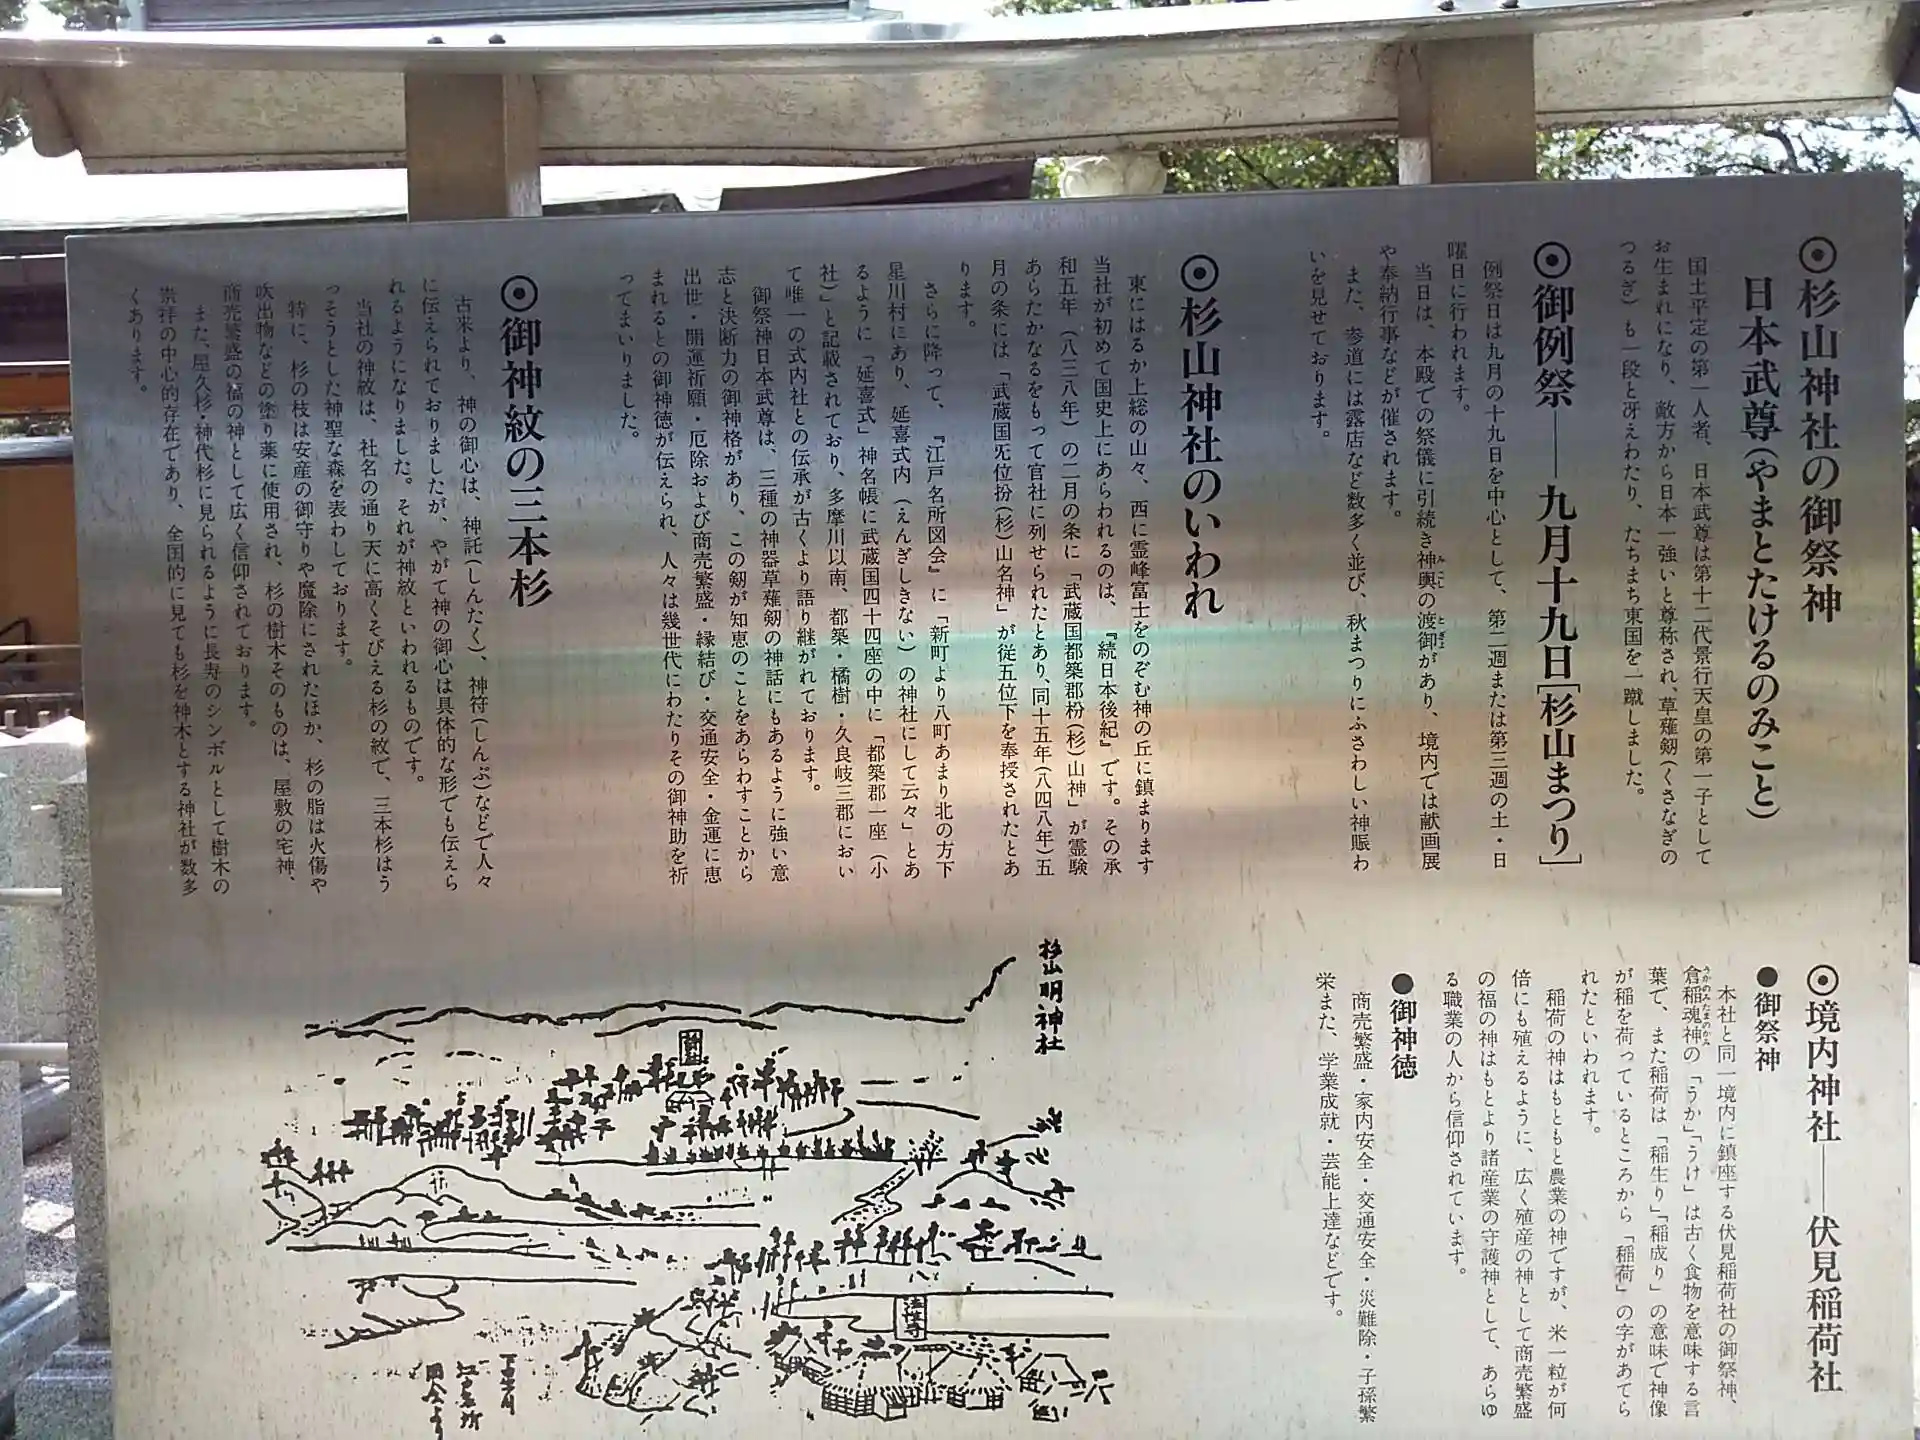 ◉杉山神社の御祭神
日本武尊(やまとたけるのみこと)
国土平定の第一人者、日本武尊は第十二代景行天皇の第一子として
お生まれになり、敵方から日本一強いと尊称され、草薙剱(くさなぎの
つるぎ)も一段と冴えわたり、たちまち東国を一蹴しました。
◉御例祭――九月十九日[杉山まつり]
例祭日は九月の十九日を中心として、第二週または第三週の土・日
曜日に行われます。
当日は、本殿での祭儀に引続き神輿の渡御があり、境内では献画展
や奉納行事などが催されます。
また、参道には露店など数多く並び、秋まつりにふさわしい神賑わ
いを見せております。
◉杉山神社のいわれ
東にはるか上総の山々、西に霊峰富士をのぞむ神の丘に鎮まります
当社が初めて国史上にあらわれるのは、『続日本後紀』です。その承
和五年(八三八年)の二月の条に「武蔵国都築郡枌(杉)山神」が霊験
あらたかなるをもって官社に列せられたとあり、同十五年(八四八年)五
月の条には「武蔵国旡位枌(杉)山名神」が従五位下を奉授されたとあ
ります。
さらに降って、『江戸名所図会』に「新町より八町あまり北の方下
星川村にあり、延喜式内(えんぎしきない)の神社にして云々」とあ
るように「延喜式」神名帳に武蔵国四十四座の中に「都築郡一座(小
社)」と記載されており、多摩川以南、都築・橘樹・久良岐三郡におい
て唯一の式内社との伝承が古くより語り継がれております。
御祭神日本武尊は、三種の神器草薙剱の神話にもあるように強い意
志と決断力の御神格があり、この剱が知恵のことをあらわすことから
出世・開運祈願・厄除および商売繁盛・縁結び・交通安全・金運に恵
まれるとの御神徳が伝えられ、人々は幾世代にわたりその御神助を祈
ってまいりました。
◉御神紋の三本杉
古来より、神の御心は、神託(しんたく)、神符(しんぷ)などで人々
に伝えられておりましたが、やがて神の御心は具体的な形でも伝えら
れるようになりました。それが神紋といわれるものです。
当社の神紋は、社名の通り天に高くそびえる杉の紋で、三本杉はう
っそうとした神聖な森を表わしております。
特に、杉の枝は安産の御守りや魔除にされたほか、杉の脂は火傷や
吹出物などの塗り薬に使用され、杉の樹木そのものは、屋敷の宅神、
商売繁盛の福の神として広く信仰されております。
また、屋久杉・神代杉に見られるように長寿のシンボルとして樹木の
崇拝の中心的存在であり、全国的に見ても杉を神木とする神社が数多
くあります。
◉境内神社――伏見稲荷社
●御祭神
本社と同一境内に鎮座する伏見稲荷社の御祭神、
倉稲魂神の「うか」「うけ」は古く食物を意味する言
葉で、また稲荷は「稲生り」「稲成り」の意味で神像
が稲を荷っているところから「稲荷」の字があてら
れたといわれます。
稲荷の神はもともと農業の神ですが、米一粒が何
倍にも殖えるように、広く殖産の神として商売繁盛
の福の神はもとより諸産業の守護神として、あらゆ
る職業の人から信仰されています。
●御神徳
商売繁盛・家内安全・交通安全・災難除・子孫繁
栄また、学業成就・芸能上達などです。
杉山明神社
江戸名所